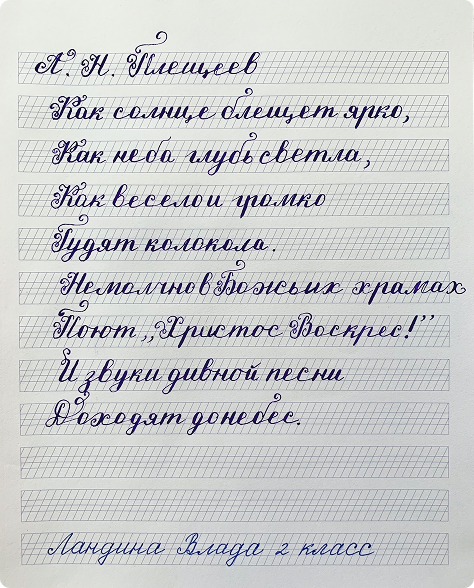 А. Н. Плещеев
Как солнце блещет ярко,
Как неба глубь светла,
Как весело и громко
Гудят колокола.
Немолчно в Божьих храмах
Поют „Христос Воскрес!”
И звуки дивной песни
Доходят до небес.
Ландина Влада 2 класс